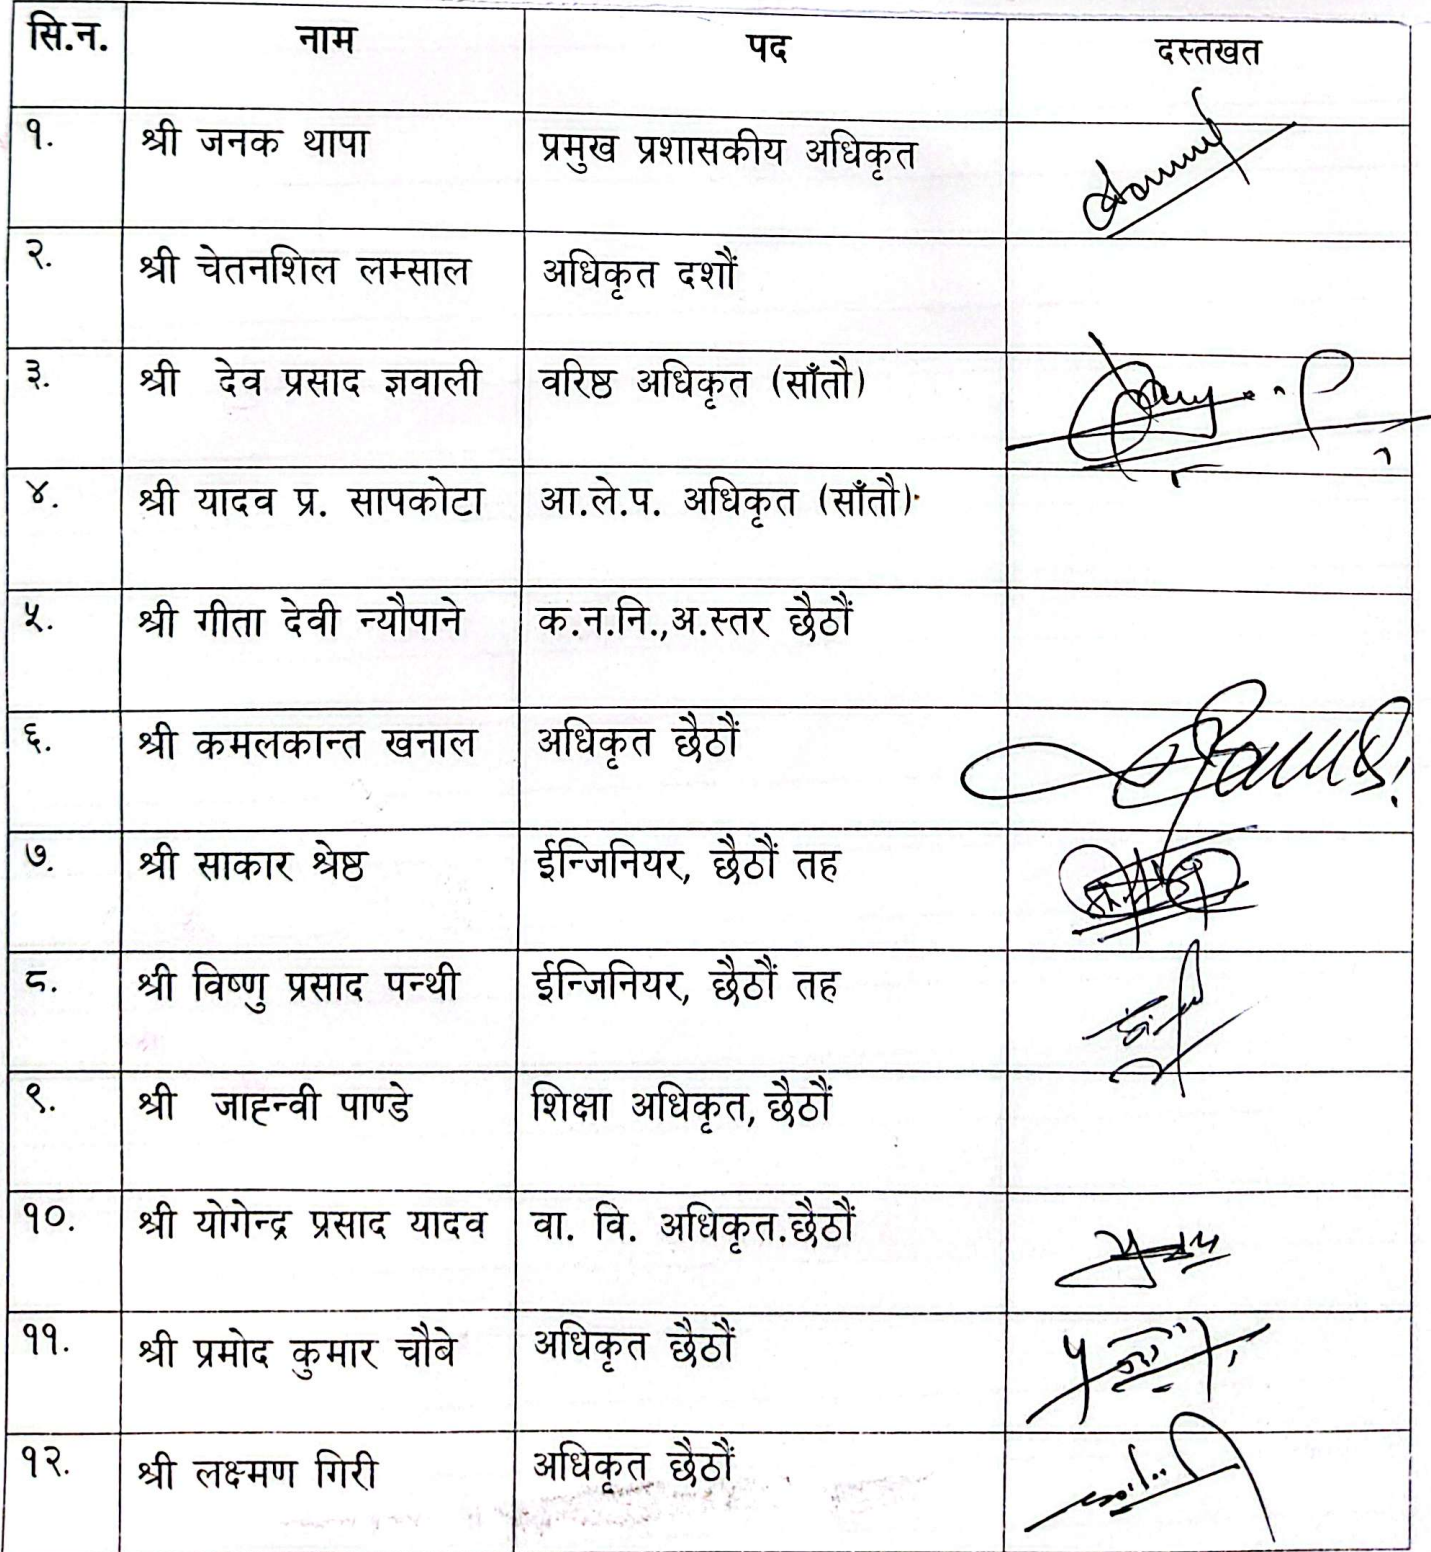 सि.न. नाम पद दस्तखत
१. श्री जनक थापा प्रमुख प्रशासकीय अधिकृत
२. श्री चेतनशिल लम्साल अधिकृत दशौं
३. श्री देव प्रसाद ज्ञवाली वरिष्ठ अधिकृत (साँतौ)
४. श्री यादव प्र. सापकोटा आ.ले.प. अधिकृत (साँतौ)
५. श्री गीता देवी न्यौपाने क.न.नि.,अ.स्तर छैठौं
६. श्री कमलकान्त खनाल अधिकृत छैठौं
७. श्री साकार श्रेष्ठ ईन्जिनियर, छैठौं तह
८. श्री विष्णु प्रसाद पन्थी ईन्जिनियर, छैठौं तह
९. श्री जाह्न्वी पाण्डे शिक्षा अधिकृत, छैठौं
१०. श्री योगेन्द्र प्रसाद यादव वा. वि. अधिकृत.छैठौं
११. श्री प्रमोद कुमार चौबे अधिकृत छैठौं
१२. श्री लक्ष्मण गिरी अधिकृत छैठौं